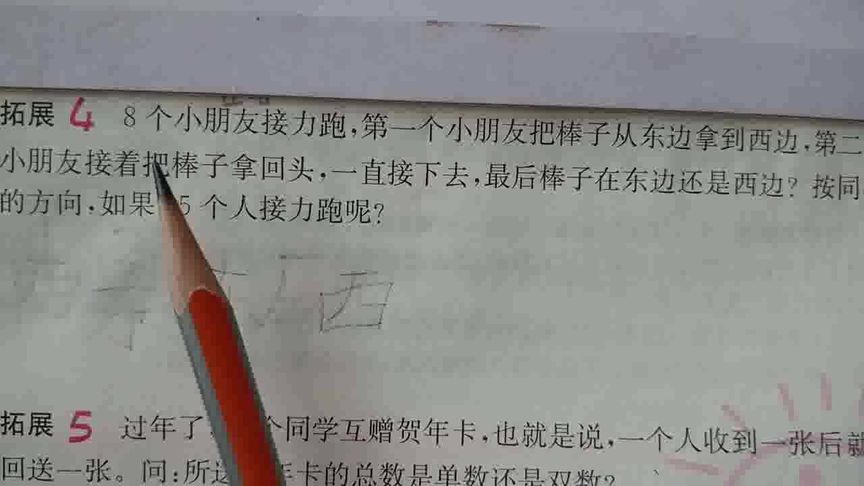 拓展 4 8个小朋友接力跑,第一个小朋友把棒子从东边拿到西边,第二
小朋友接着把棒子拿回头,一直接下去,最后棒子在东边还是西边?按同
的方向,如果 5个人接力跑呢?
西
拓展 5 过年了 个同学互赠贺年卡,也就是说,一个人收到一张后就
回送一张。问:所 年卡的总数是单数还是双数?